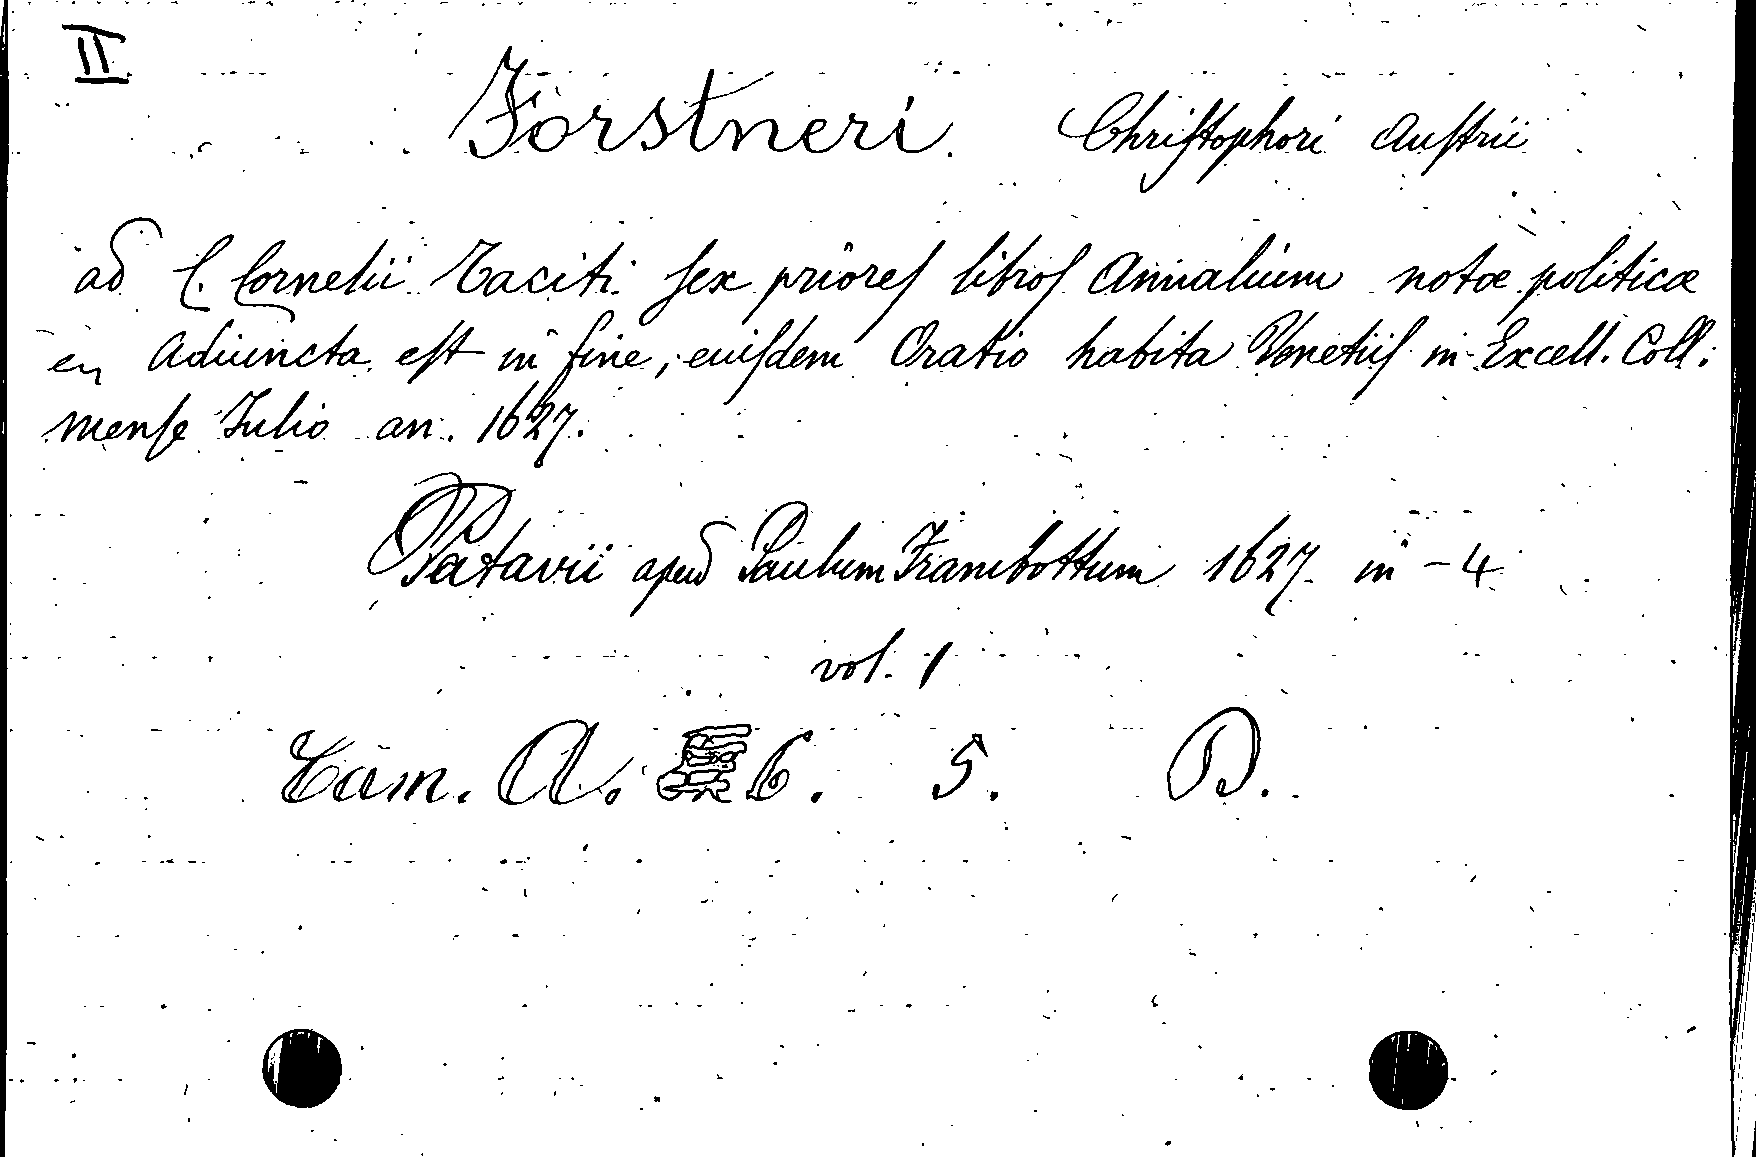 II
Förstneri Chriſtophori Auſtrii
ad C. Cornelii Taciti ſex priores libros Annalium notæ politicæ
en Adiuncta eſt in fine, euiſdem Oratio habita Venetiis in Excell. Coll:
menſe Iulio an. 1627.
Patavii apud Paulum Frambottum 1627. in - 4
vol. 1
Cam. A. 6. 5. D.